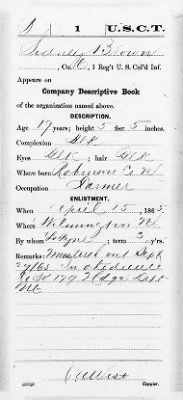 B | 1 | U.S.C.T.
Sidney Brown
, Co. C, 1 Reg't U.S. Col'd Inf.
Appears on
Company Descriptive Book
of the organization named above.
DESCRIPTION.
Age 19 years; height 5 feet 5 inches.
Complexion Blk
Eyes Blk ; hair Blk
Where born Robinson Co NC
Occupation Farmer
ENLISTMENT.
When April 15, 1865.
Where Wilmington NC
By whom ; term 3 y'rs.
Remarks: Mustered out Sept
29/65 in obedience
Dept
NC
Copyist.